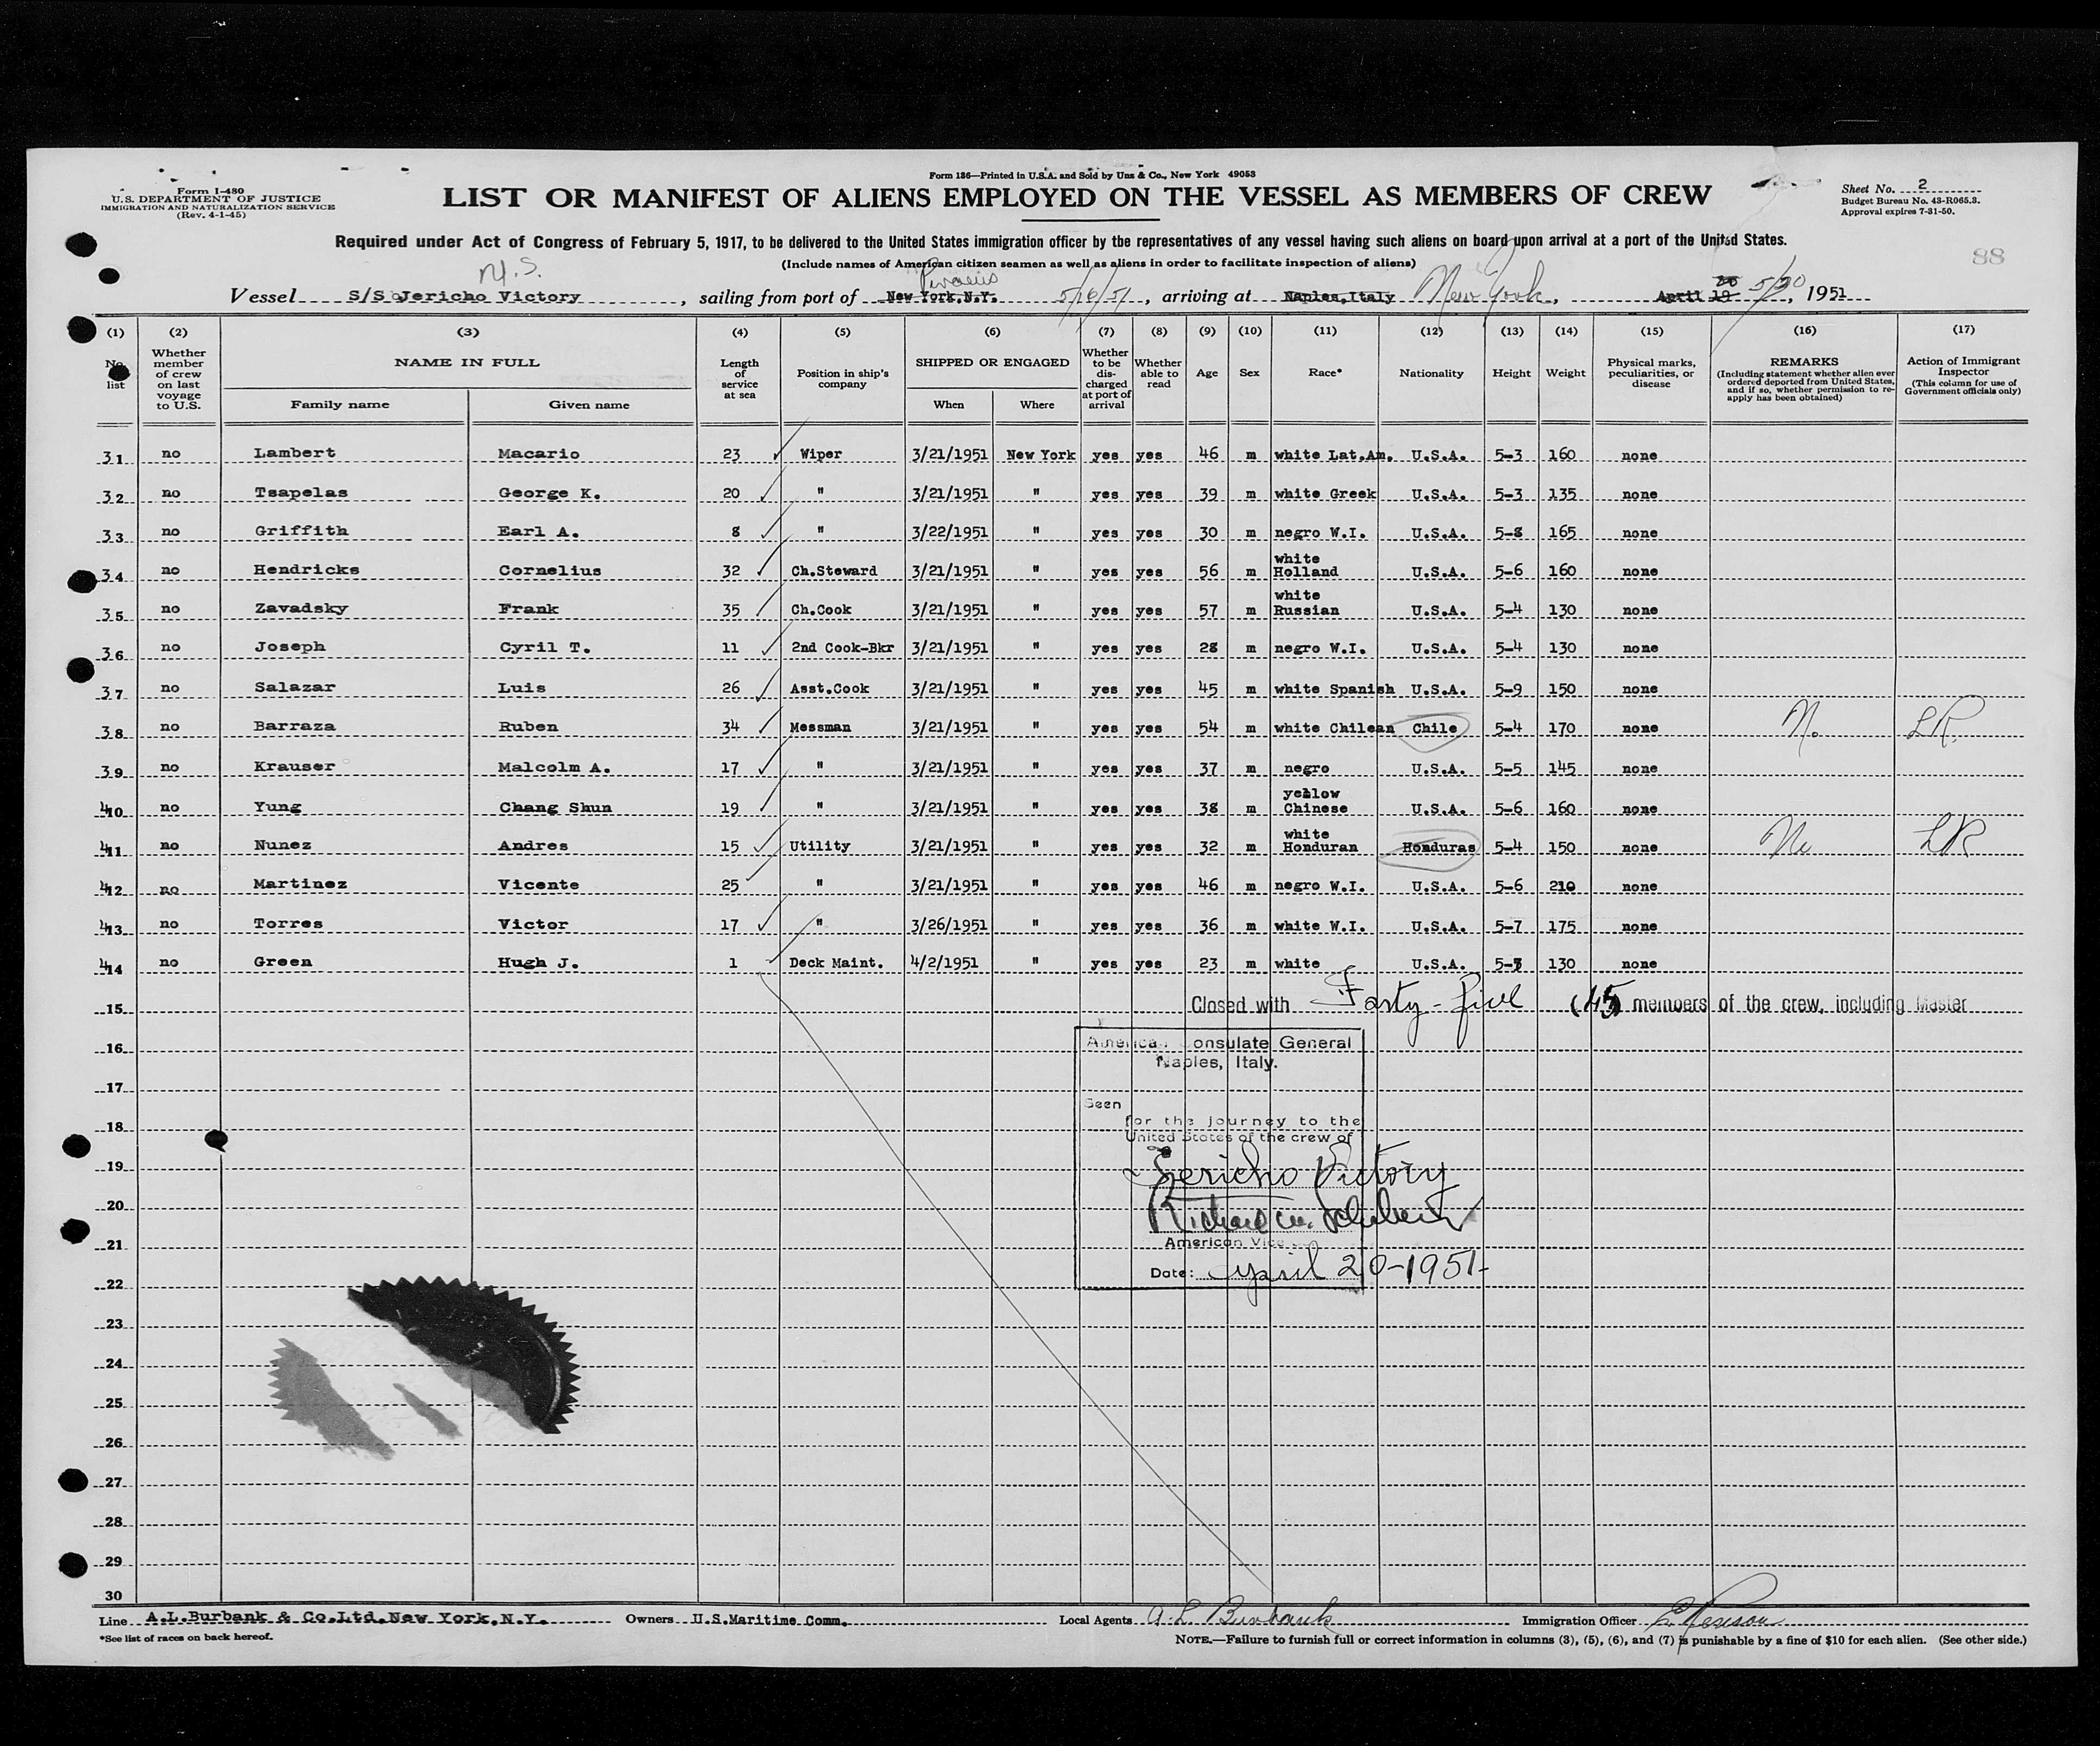 Form 186—Printed in U.S.A. and Sold by Unz & Co., New York 49053
Form I-480
U.S. DEPARTMENT OF JUSTICE
IMMIGRATION AND NATURALIZATION SERVICE
(Rev. 4-1-45)
LIST OR MANIFEST OF ALIENS EMPLOYED ON THE VESSEL AS MEMBERS OF CREW
Sheet No. 2
Budget Bureau No. 43-R065.3.
Approval expires 7-31-50.
Required under Act of Congress of February 5, 1917, to be delivered to the United States immigration officer by the representatives of any vessel having such aliens on board upon arrival at a port of the United States.
88
(Include names of American citizen seamen as well as aliens in order to facilitate inspection of aliens)
Vessel S/S Jericho Victory, sailing from port of New York,N.Y. Piraeus 5/6/51, arriving at Naples,Italy New York, April 19 20 5/20, 1951
(1) (2) (3) (4) (5) (6) (7) (8) (9) (10) (11) (12) (13) (14) (15) (16) (17)
No. list
Whether member of crew on last voyage to U.S.
NAME IN FULL
Family name Given name
Length of service at sea
Position in ship's company
SHIPPED OR ENGAGED
When Where
Whether to be discharged at port of arrival
Whether able to read
Age
Sex
Race*
Nationality
Height
Weight
Physical marks, peculiarities, or disease
REMARKS
(Including statement whether alien ever ordered deported from United States, and if so, whether permission to reapply has been obtained)
Action of Immigrant Inspector
(This column for use of Government officials only)
31 no Lambert Macario 23 Wiper 3/21/1951 New York yes yes 46 m white Lat.Am. U.S.A. 5-3 160 none
32 no Tsapelas George K. 20 " 3/21/1951 " yes yes 39 m white Greek U.S.A. 5-3 135 none
33 no Griffith Earl A. 8 " 3/22/1951 " yes yes 30 m negro W.I. U.S.A. 5-8 165 none
34 no Hendricks Cornelius 32 Ch.Steward 3/21/1951 " yes yes 56 m white Holland U.S.A. 5-6 160 none
35 no Zavadsky Frank 35 Ch.Cook 3/21/1951 " yes yes 57 m white Russian U.S.A. 5-4 130 none
36 no Joseph Cyril T. 11 2nd Cook-Bkr 3/21/1951 " yes yes 28 m negro W.I. U.S.A. 5-4 130 none
37 no Salazar Luis 26 Asst.Cook 3/21/1951 " yes yes 45 m white Spanish U.S.A. 5-9 150 none
38 no Barraza Ruben 34 Messman 3/21/1951 " yes yes 54 m white Chilean Chile 5-4 170 none No LR.
39 no Krauser Malcolm A. 17 " 3/21/1951 " yes yes 37 m negro U.S.A. 5-5 145 none
40 no Yung Chang Shun 19 " 3/21/1951 " yes yes 38 m yellow Chinese U.S.A. 5-6 160 none
41 no Nunez Andres 15 Utility 3/21/1951 " yes yes 32 m white Honduran Honduras 5-4 150 none No LR
42 no Martinez Vicente 25 " 3/21/1951 " yes yes 46 m negro W.I. U.S.A. 5-6 210 none
43 no Torres Victor 17 " 3/26/1951 " yes yes 36 m white W.I. U.S.A. 5-7 175 none
44 no Green Hugh J. 1 Deck Maint. 4/2/1951 " yes yes 23 m white U.S.A. 130 none
15 Closed with Forty-five (45) members of the crew, including Master
16 American Consulate General
Naples, Italy.
17
Seen
18 for the journey to the
United States of the crew of
19 Jericho Victory
20
21 American Vice
22 Date: April 20-1951-
23
24
25
26
27
28
29
30
Line A.L.Burbank & Co.Ltd.New York,N.Y. Owners U.S.Maritime Comm. Local Agents A. L. Burbank Immigration Officer
*See list of races on back hereof.
NOTE.—Failure to furnish full or correct information in columns (3), (5), (6), and (7) is punishable by a fine of $10 for each alien. (See other side.)